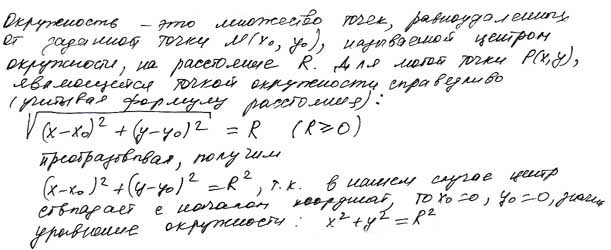 Окружность – это множество точек, равноудаленных
от заданной точки M(x₀, y₀), называемой центром
окружности, на расстояние R. Для любой точки P(x,y),
являющейся точкой окружности справедливо
(учитывая формулу расстояния):
√((x-x₀)² + (y-y₀)²) = R (R≥0)
преобразовывая, получим
(x-x₀)² + (y-y₀)² = R², т.к. в нашем случае центр
совпадает с началом координат, то x₀=0, y₀=0, значит
уравнение окружности: x² + y² = R²